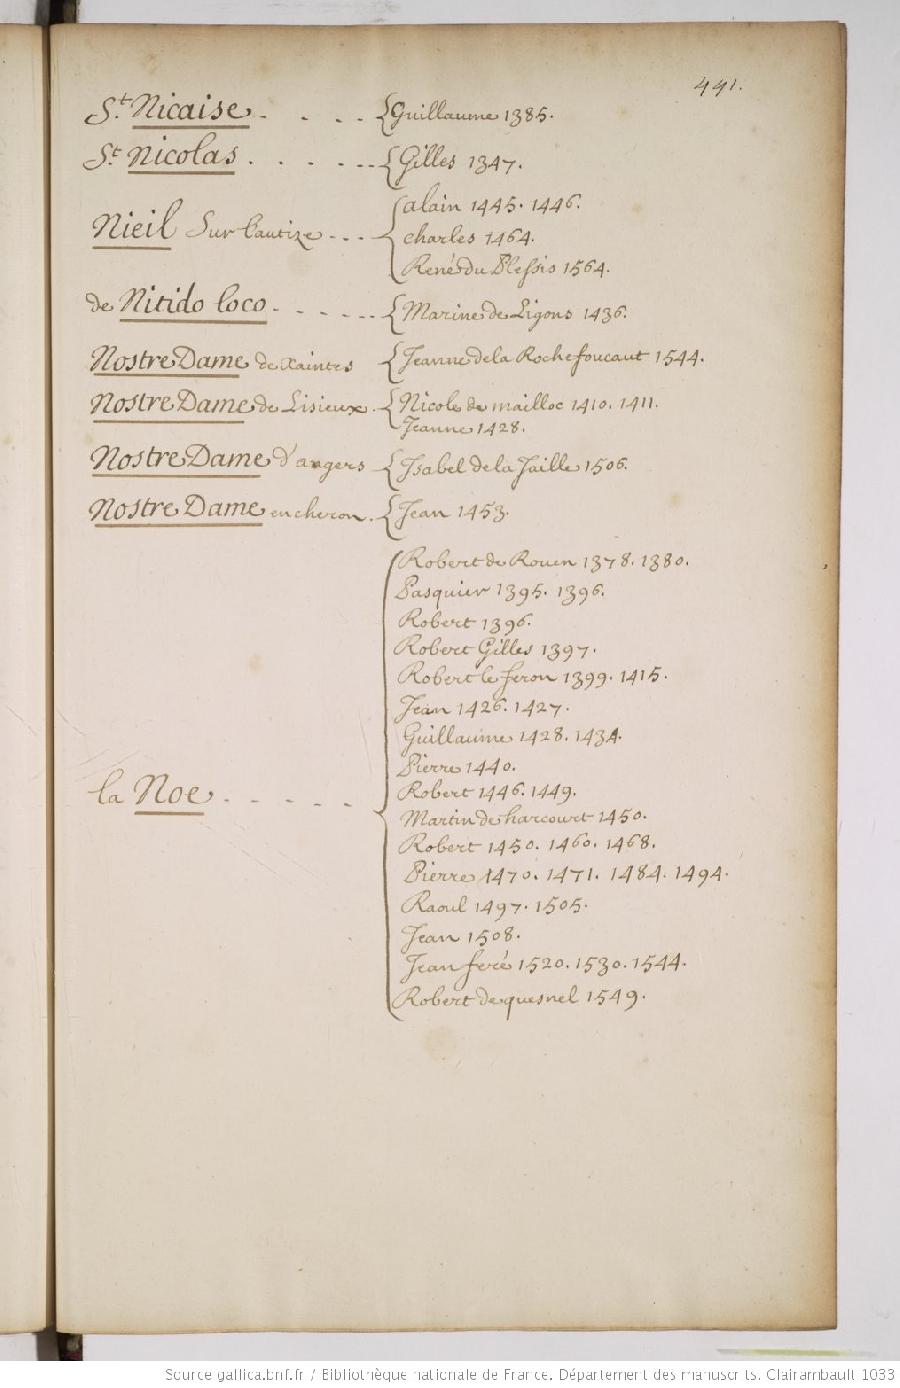 441.
St. Nicaise. . . . . {Guillaume 1385.
St. Nicolas . . . . . . {Gilles 1347.
{alain 1445. 1446.
Nieil Sur Lautize . . . charles 1464.
René du Plessis 1564.
de Nitido loco . . . . . . {Marine de Ligons 1436.
Nostre Dame de Xaintes {Jeanne de la Rochefoucaut 1544.
Nostre Dame de Lisieux . {Nicole de mailloc 1410. 1411.
Jeanne 1428.
Nostre Dame d'angers {Isabel de la Jaille 1506.
Nostre Dame encheron . {Jean 1453.
Robert de Rouen 1378. 1380.
Pasquier 1395. 1396.
Robert 1396.
Robert Gilles 1397.
Robert le feron 1399. 1415.
Jean 1426. 1427.
Guillaume 1428. 1434.
Pierre 1440.
la Noe . . . . . {Robert 1446. 1449.
Martin de harcourt 1450.
Robert 1450. 1460. 1468.
Pierre 1470. 1471. 1484. 1494.
Raoul 1497. 1505.
Jean 1508.
Jean feré 1520. 1530. 1544.
Robert de quesnel 1549.
Source gallica.bnf.fr / Bibliothèque nationale de France. Département des manuscrits. Clairambault 1033